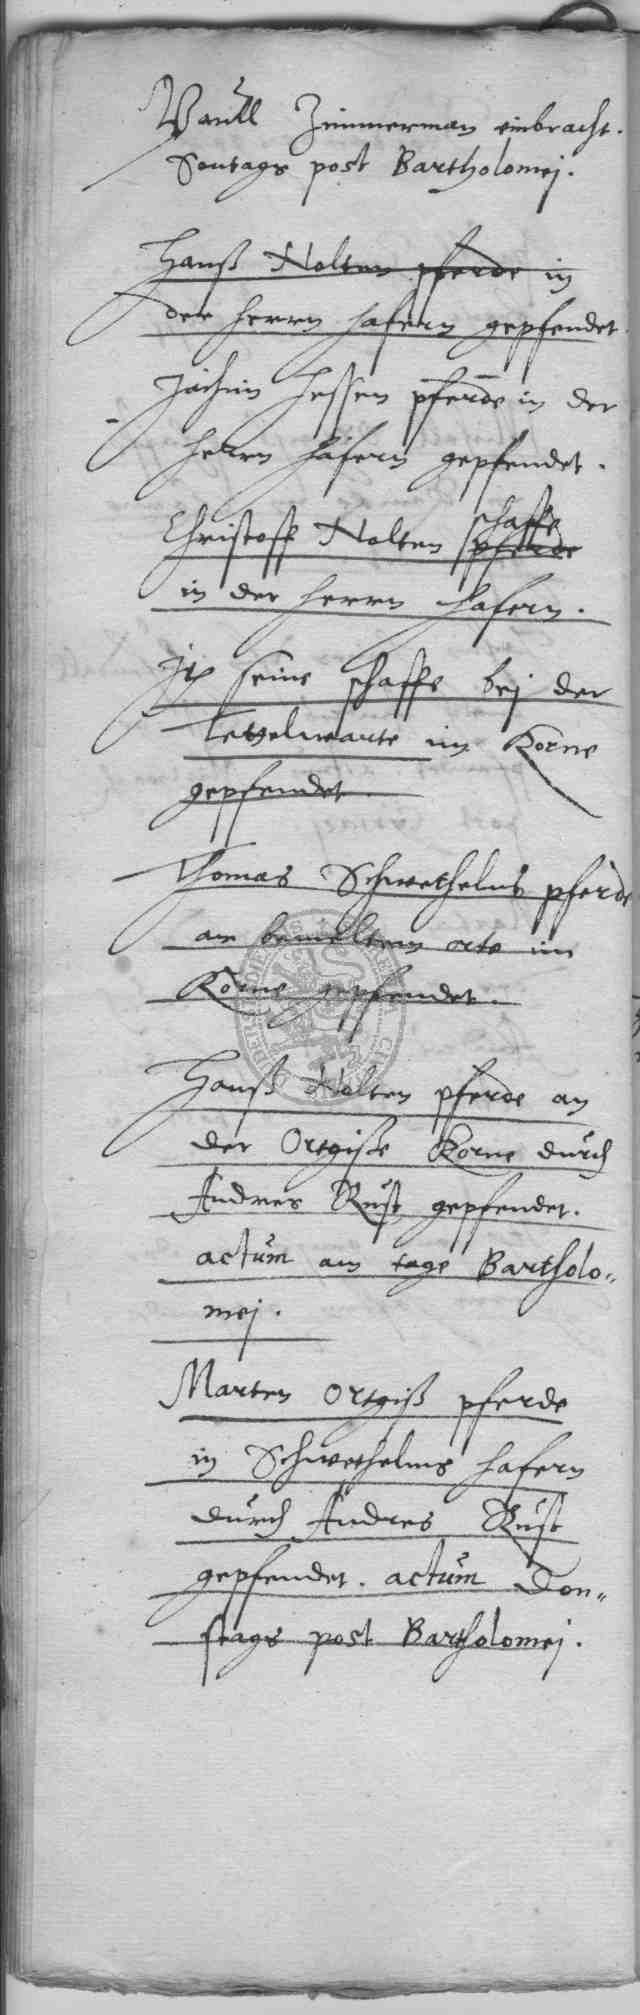 Paull Zimmerman einbracht.
Sontags post Bartholomej.
Hanß Nolten pferde in
der herrn hafern gepfendet.
Jochim Hessen pferde in der
herrn hafern gepfendet.
schaffe
Christoff Nolten pferde
in der herrn hafern.
Jt seine schaffe bej der
Tetzelwarte im Korne
gepfendet.
Thomas Schwethelms pferde
am bemeltem orte im
Korne gepfendet.
Hanß Nolten pferde an
der Ortgisse Korne durch
Andres Rust gepfendet.
actum am tage Bartholo=
mej.
Marten Ortgiß pferde
in Schwethelms hafern
durch Andres Rust
gepfendet. actum Don=
stags post Bartholomej.